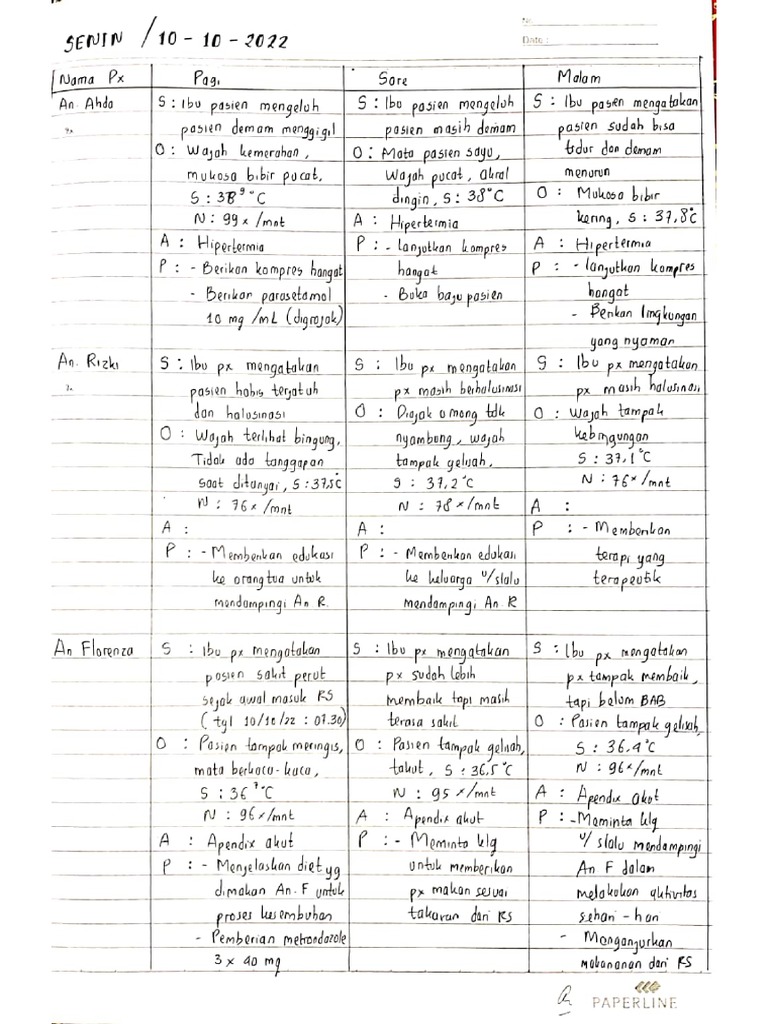 No:
SENIN / 10 - 10 - 2022
Date:
Nama Px
Pagi
Sore
Malam
An. Ahda
S : Ibu pasien mengeluh
pasien demam menggigil
O : Wajah kemerahan,
mukosa bibir pucat,
S : 38⁹ °C
N : 99 x /mnt
A : Hipertermia
P : - Berikan kompres hangat
- Berikan parasetamol
10 mg /mL (digrojok)
S : Ibu pasien mengeluh
pasien masih demam
O : Mata pasien sayu,
Wajah pucat, akral
dingin, S : 38°C
A : Hipertermia
P : - lanjutkan kompres
hangat
- Buka baju pasien
S : Ibu pasien mengatakan
pasien sudah bisa
tidur dan demam
menurun
O : Mukosa bibir
kering, S : 37,8°C
A : Hipertermia
P : - lanjutkan kompres
hangat
- Berikan lingkungan
yang nyaman
An. Rizki
S : Ibu px mengatakan
pasien habis terjatuh
dan halusinasi
O : Wajah terlihat bingung,
Tidak ada tanggapan
saat ditanyai, S : 37,5°C
N : 76 x /mnt
A :
P : - Memberikan edukasi
ke orangtua untuk
mendampingi An R.
S : Ibu px mengatakan
px masih berhalusinasi
O : Diajak omong tdk
nyambung, wajah
tampak gelisah,
S : 37,2°C
N : 78 x/mnt
A :
P : - Memberikan edukasi
ke keluarga u/slalu
mendampingi An. R
S : Ibu px mengatakan
px masih halusinasi
O : Wajah tampak
kebingungan
S : 37,1°C
N : 76 x /mnt
A :
P : - Memberikan
terapi yang
terapeutik
An Florenza
S : Ibu px mengatakan
pasien sakit perut
sejak awal masuk RS
( tgl 10/10/22 : 07.30)
O : Pasien tampak meringis,
mata berkaca-kaca,
S : 36⁷ °C
N : 96 x/mnt
A : Apendix akut
P : - Menjelaskan diet yg
dimakan An. F untuk
proses kesembuhan
- Pemberian metrondazole
3 x 40 mg
S : Ibu px mengatakan
px sudah lebih
membaik tapi masih
terasa sakit
O : Pasien tampak gelisah,
takut, S : 36,5°C
N : 95 x/mnt
A : Apendix akut
P : - Meminta klg
untuk memberikan
px makan sesuai
takaran dari RS
S : Ibu px mengatakan
px tampak membaik,
tapi belum BAB
O : Pasien tampak gelisah,
S : 36.4°C
N : 96 x/mnt
A : Apendix akut
P : - Meminta klg
u/ slalu mendampingi
An F dalam
melakukan aktivitas
sehari - hari
- Menganjurkan
makananan dari RS
PAPERLINE